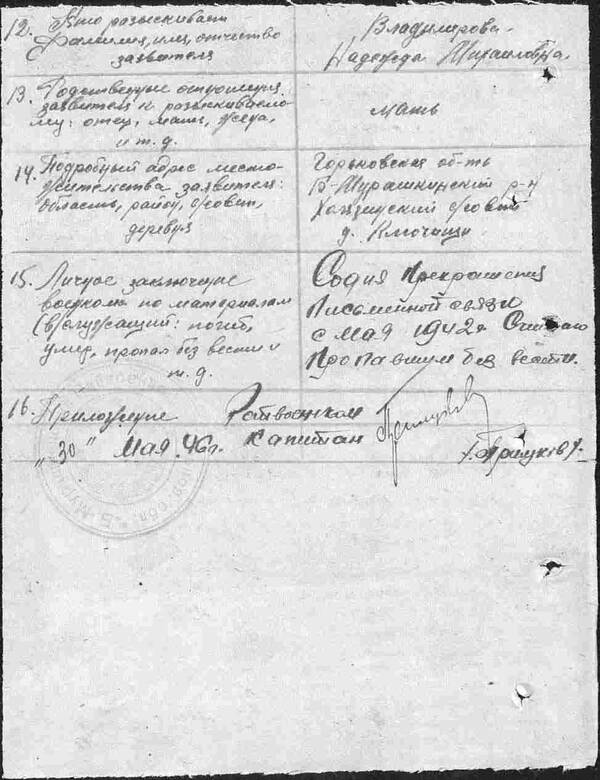 12. Кто разыскивает
фамилия, имя, отчество
заявителя
Владимирова
Надежда Михайловна.
13. Родственные отношения
заявителя к разыскиваемо-
му: отец, мать, жена,
и т. д.
мать
14. Подробный адрес место-
жительства заявителя:
область, район, с/совет,
деревня
Горьковская об-ть
Б-Мурашкинский р-н
с/совет
д. Ключищи
15. Личное заключение
военкома по материалам
(в/служащий: погиб,
умер, пропал без вести и
т. д.
Со дня Прекращения
Письменной связи
с мая 1942г Считаю
Пропавшим без вести.
16. Приложение
Райвоенком
"30" Мая 46г.
Капитан